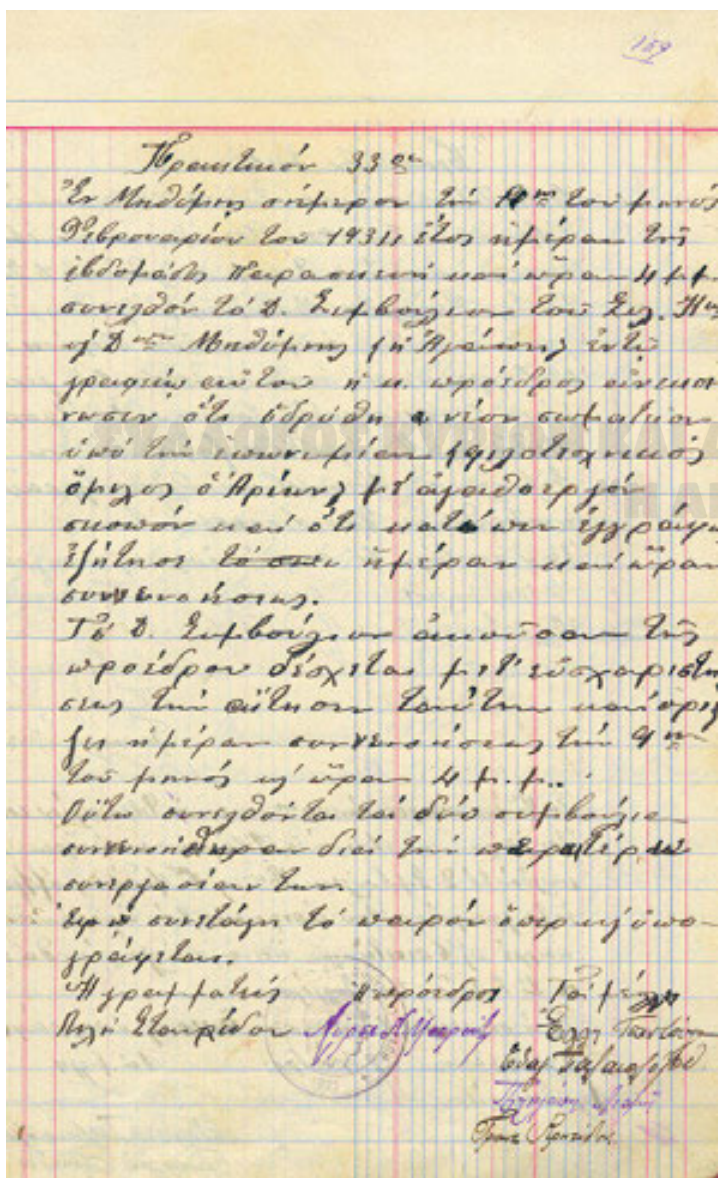 159
Πρακτικόν 33ον
Ἐν Μηθύμνῃ σήμερον τὴν τοῦ μηνός
Φεβρουαρίου τοῦ 1934 ἔτος ἡμέραν τῆς
ἑβδομάδος Παρασκευή καί ὥραν 4 μ.μ.
συνελθόν τό Δ. Συμβούλιον τοῦ Συλ. Κυ
ῶν Μηθύμνης "ἡ Ἀγάπη" ἐντός
γραφείου αὐτοῦ ἡ κ. πρόεδρος ἀνεκοί
νωσεν ὅτι ἱδρύθη νέον σωματεῖον
ὑπό τήν ἐπωνυμίαν "φιλοτεχνικός
ὅμιλος ὁ Ἀρίων" μέ ἀγαθοεργόν
σκοπόν καί ὅτι κατόπιν ἐγγράφου
ἐζήτησε ἡμέραν καί ὥραν
συνεννοήσεως.
Τό Δ. Συμβούλιον ἀκοῦσαν τῆς
προέδρου δέχεται μετ' εὐχαριστή
σεως τήν αἴτησιν ταύτην καί ὁρί
ζει ἡμέραν συνεννοήσεως τήν 9ην
τοῦ μηνός κ' ὥραν 4 μ.μ..
Οὕτω συνελθόντα τά δύο συμβούλια
συνεννοήθησαν διά τήν περαιτέρω
συνεργασίαν των.
Ἐφ' ᾧ συνετάγη τό παρόν ὅπερ κ' ὑπο-
γράφεται.
Ἡ γραμματεύς Ἡ πρόεδρος Τά μέλη
Σταυρίδου
Ἕλλη